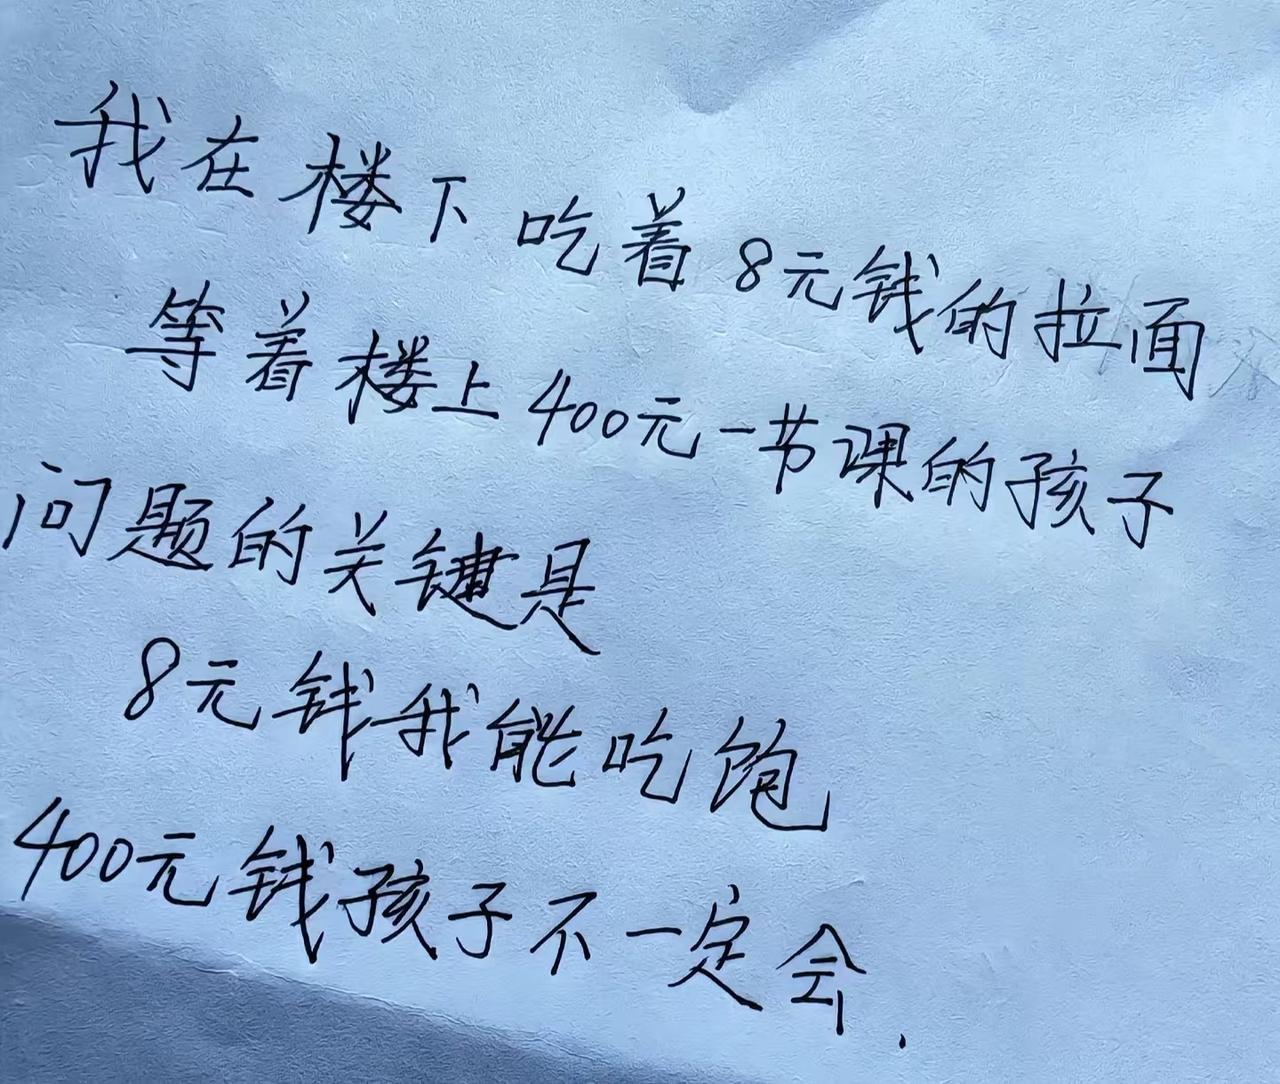 我在楼下吃着8元钱的拉面
等着楼上400元一节课的孩子
问题的关键是
8元钱我能吃饱
400元钱孩子不一定会.